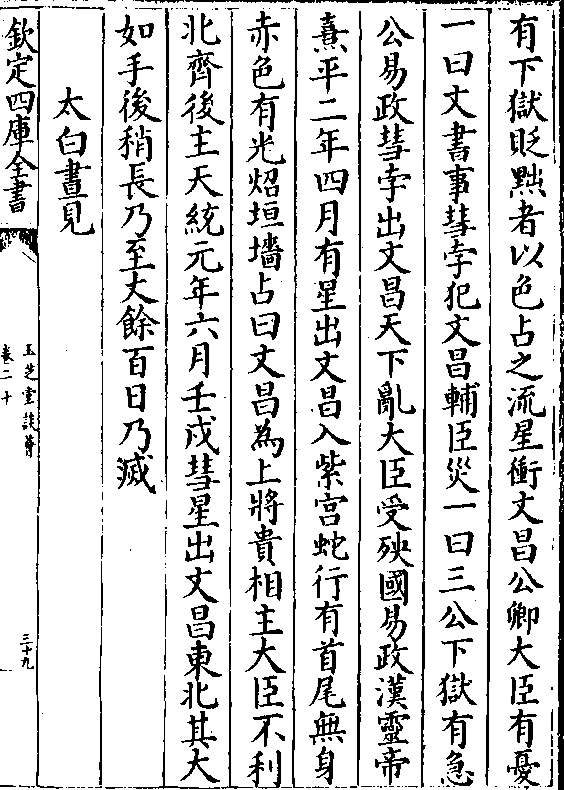 有下獄貶黜者以色占之流星衝文昌公卿大臣有憂
一曰文書事彗孛犯文昌輔臣災一曰三公下獄有急
公易政彗孛出文昌天下亂大臣受殃國易政漢靈帝
熹平二年四月有星出文昌入紫宫蛇行有首尾無身
赤色有光炤垣墻占曰文昌為上將貴相主大臣不利
北齊後主天統元年六月壬戌彗星出文昌東北其大
如手後稍長乃至丈餘百日乃滅
太白晝見
欽定四庫全書
玉芝堂談薈
卷二十
三十九